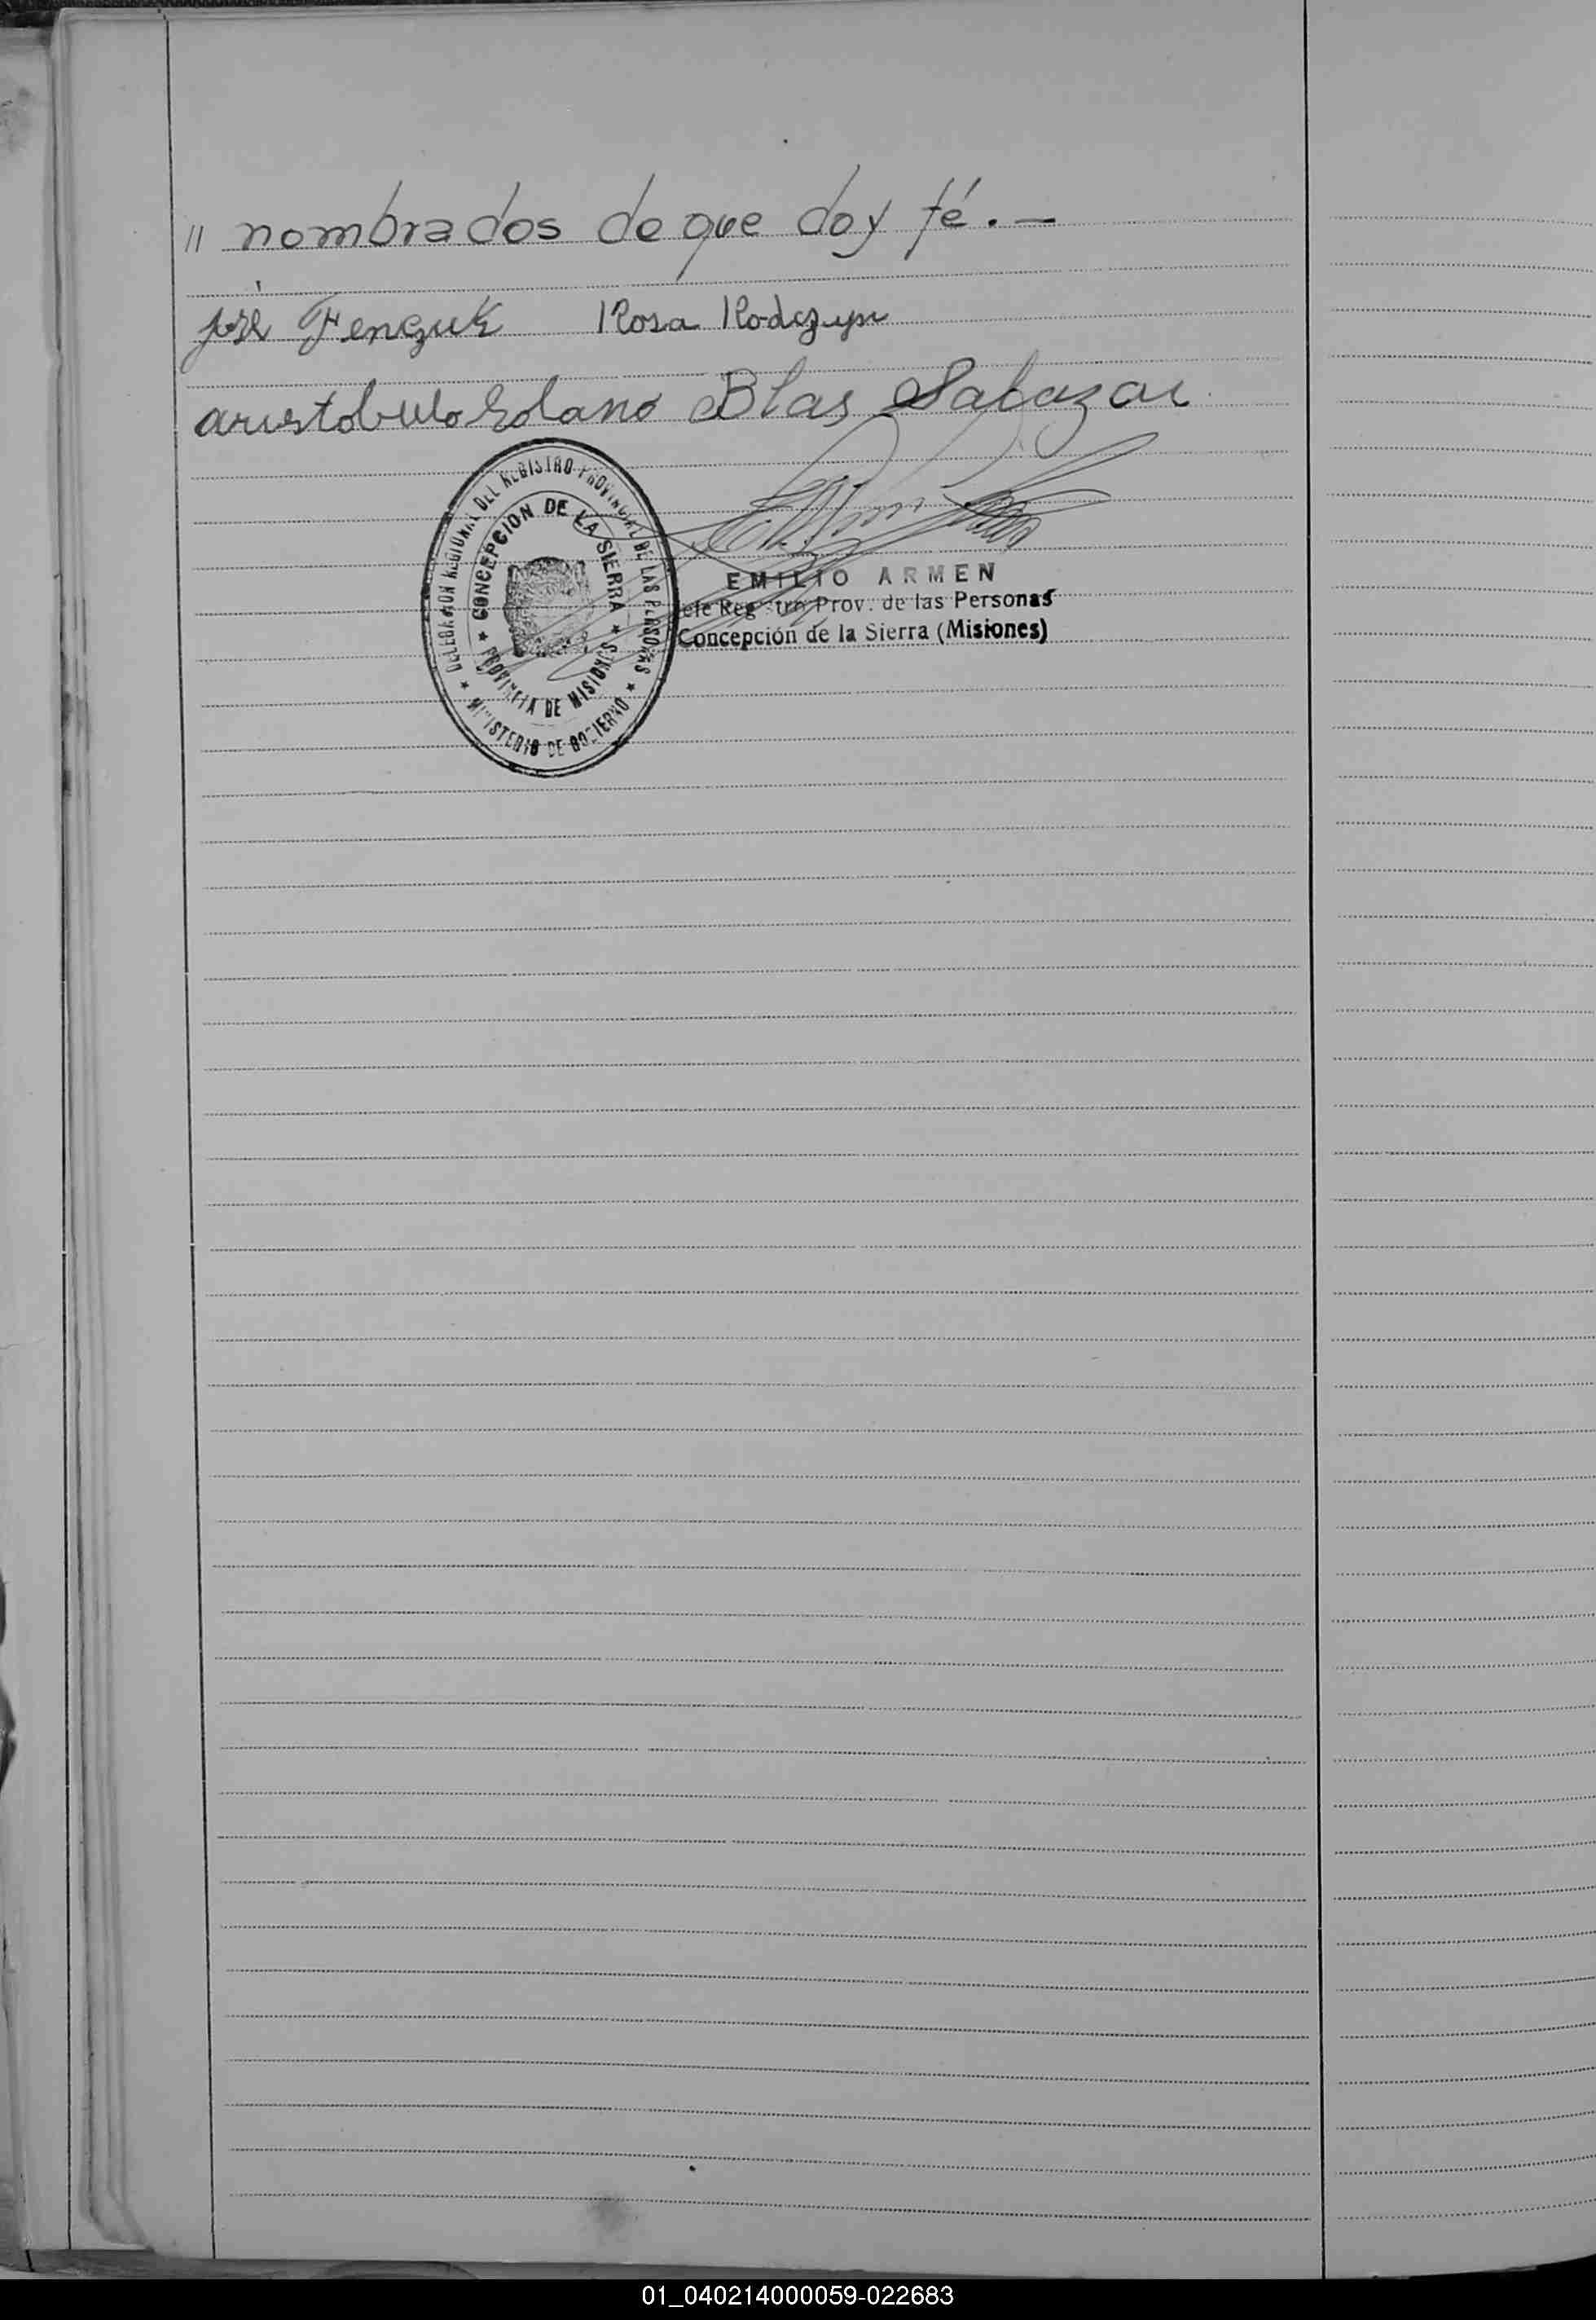 // nombrados de que doy fé.—
José Fenczuk Rosa Rodczyn
aristobulo Solano Blas Salazar
DELEGACION REGIONAL DEL REGISTRO PROVINCIAL DE LAS PERSONAS
★ MINISTERIO DE GOBIERNO ★
★ CONCEPCION DE LA SIERRA ★
PROVINCIA DE MISIONES
EMILIO ARMEN
efe Registro Prov. de las Personas
Concepción de la Sierra (Misiones)
01_040214000059-022683